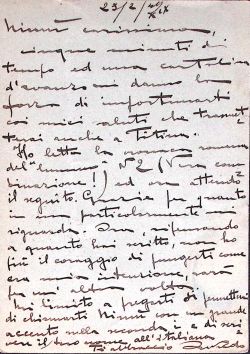 23/2/40
XIX
Mimì carissimo,
cinque minuti di
tempo ed una cartolina
d'avanzo mi danno la
forza di importunarti
coi miei saluti che trasmet-
terai anche a Titina.
Ho letto la cronaca romana
del "Lunario" N° 2 (Vera com-
binazione!) ed ora attendo
il seguito. Grazie per quanto
in essa particolarmente mi
riguarda. Ora, ripensando
a quanto hai scritto, non ho
più il coraggio di pregarti come
era mia intenzione, sarà
per un'altra volta.
Mi limito a pregarti di permettermi
di chiamarti Mimì con un grande
accento sulla seconda i e di scri-
vere il tuo nome all'italiana
Ti abbraccio